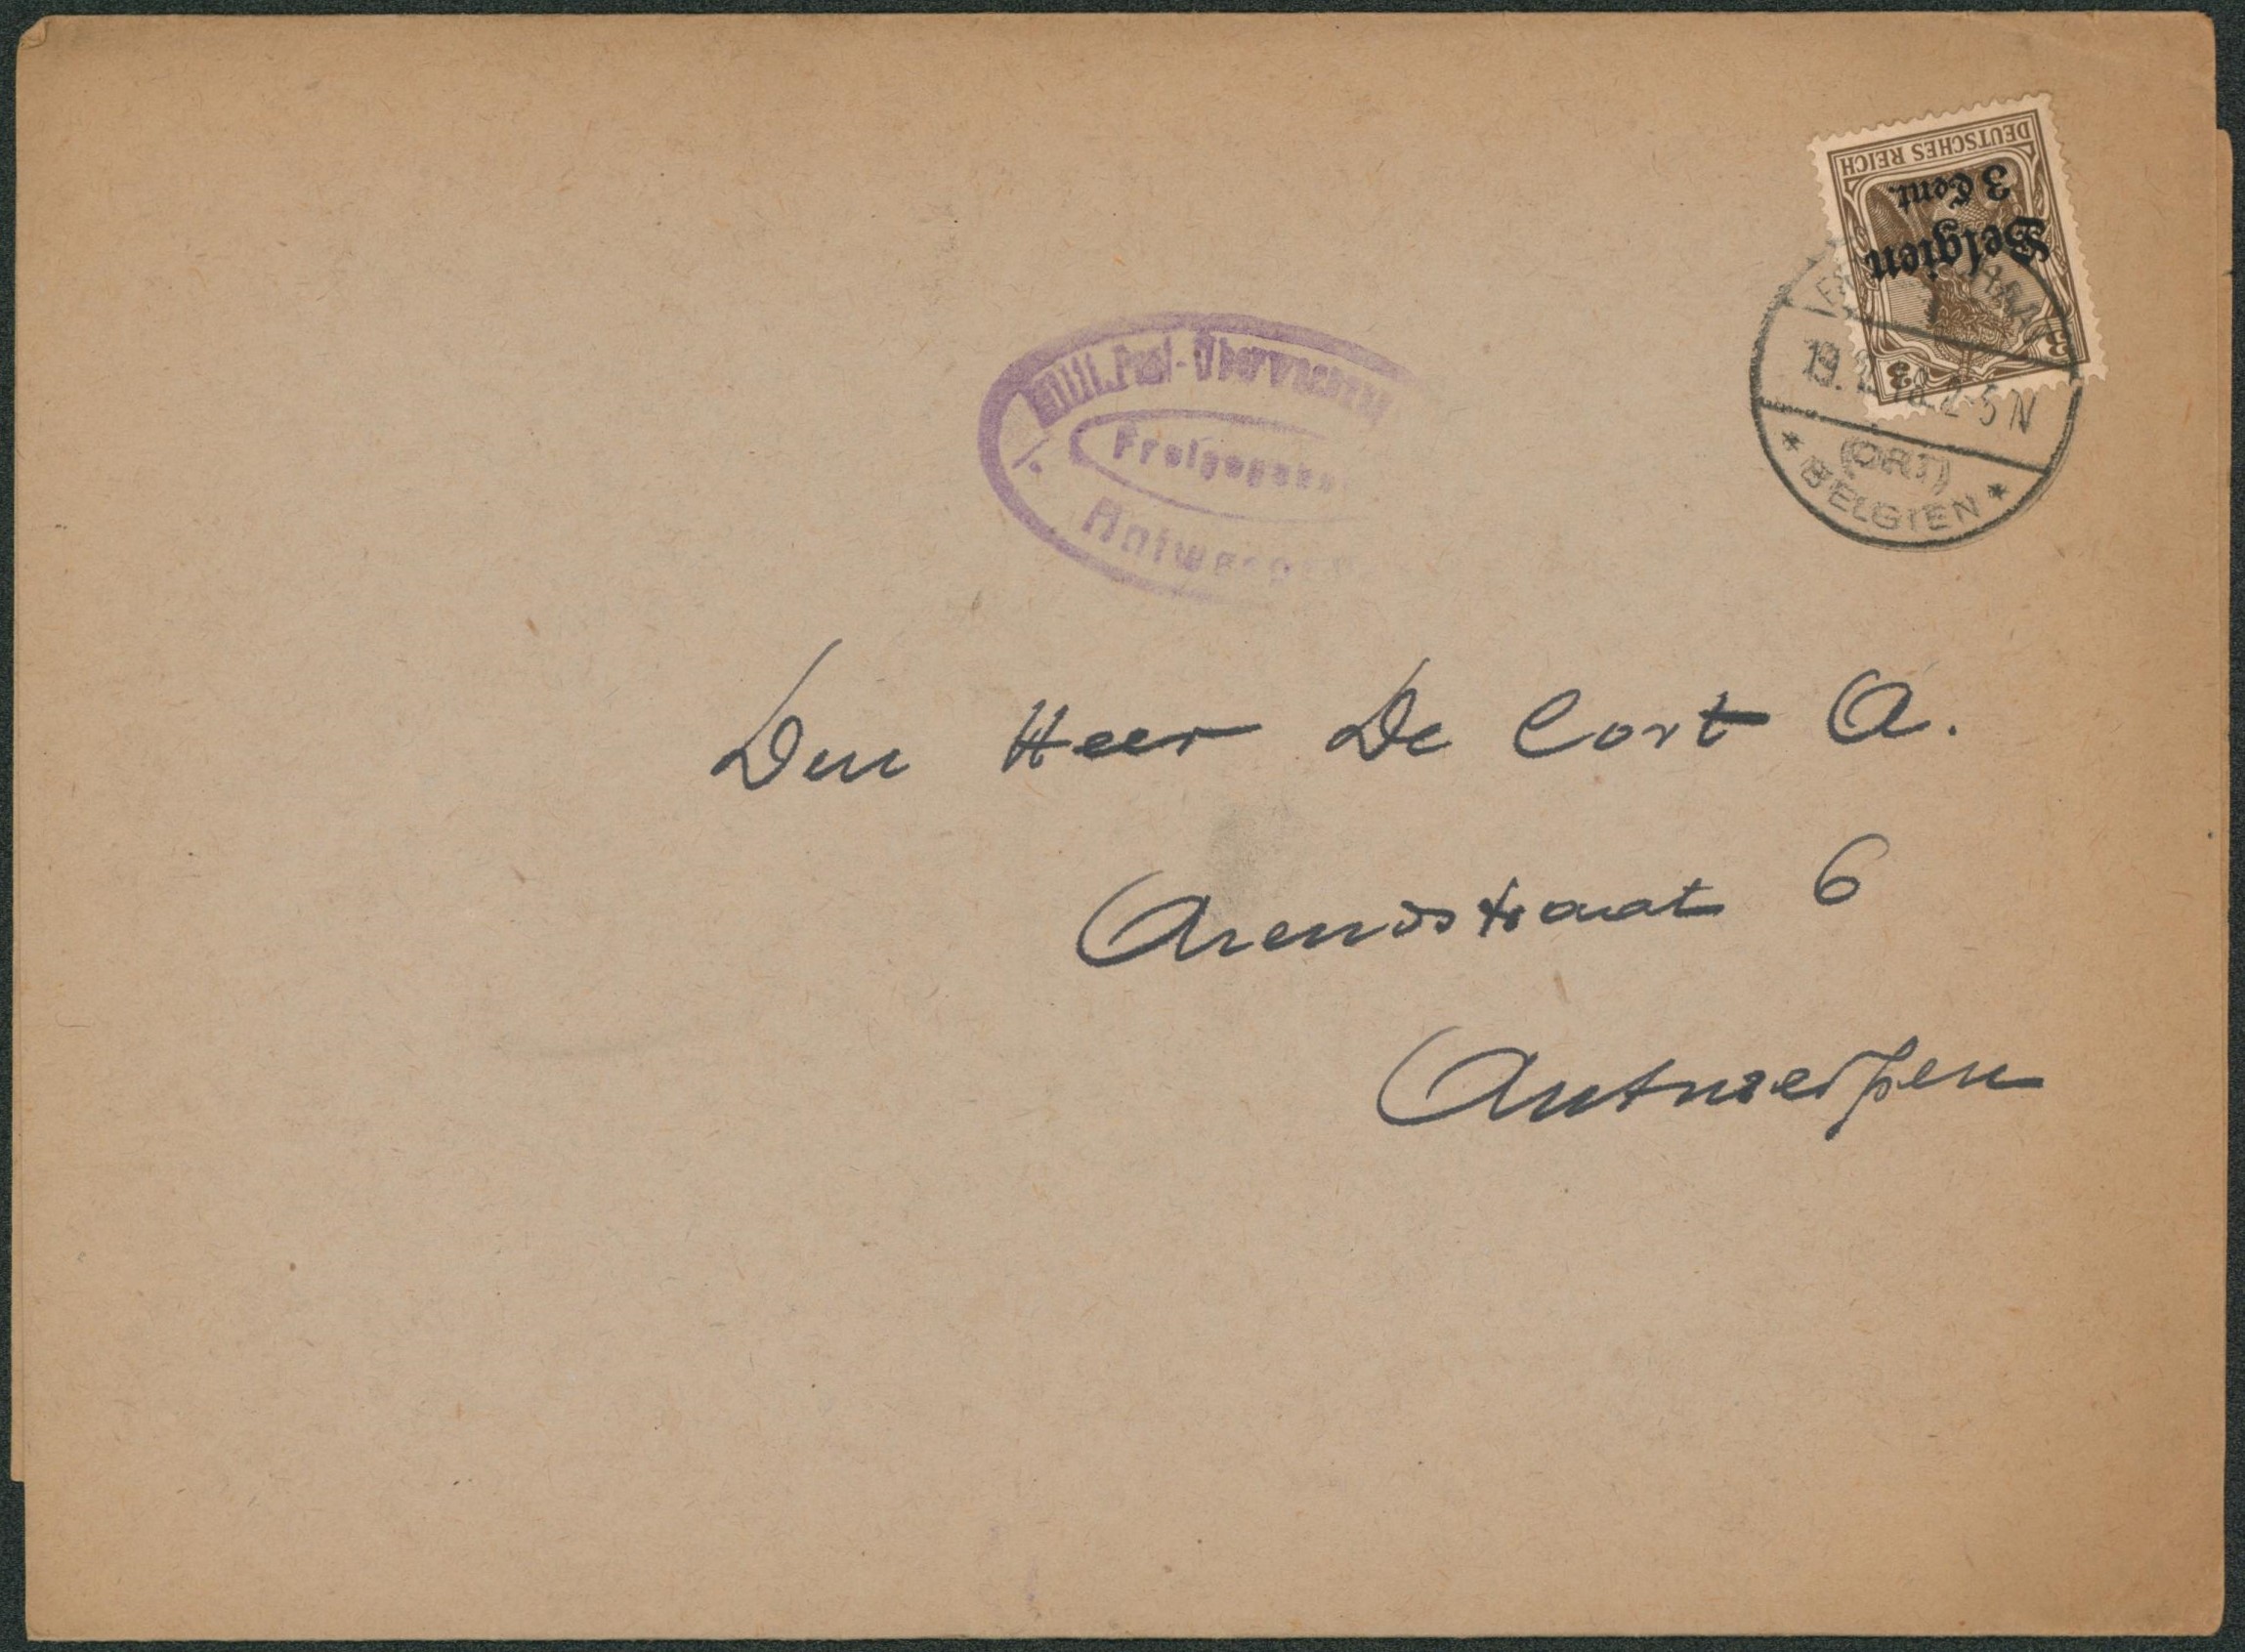 DEUTSCHES REICH
3 Cent.
Belgien
3 3
19. 2-5N
(ORT)
* BELGIEN *
Milit. Post-Überwachung
Freigegeben
Antwerpen
Den Heer De Cort A.
Arendstraat 6
Antwerpen